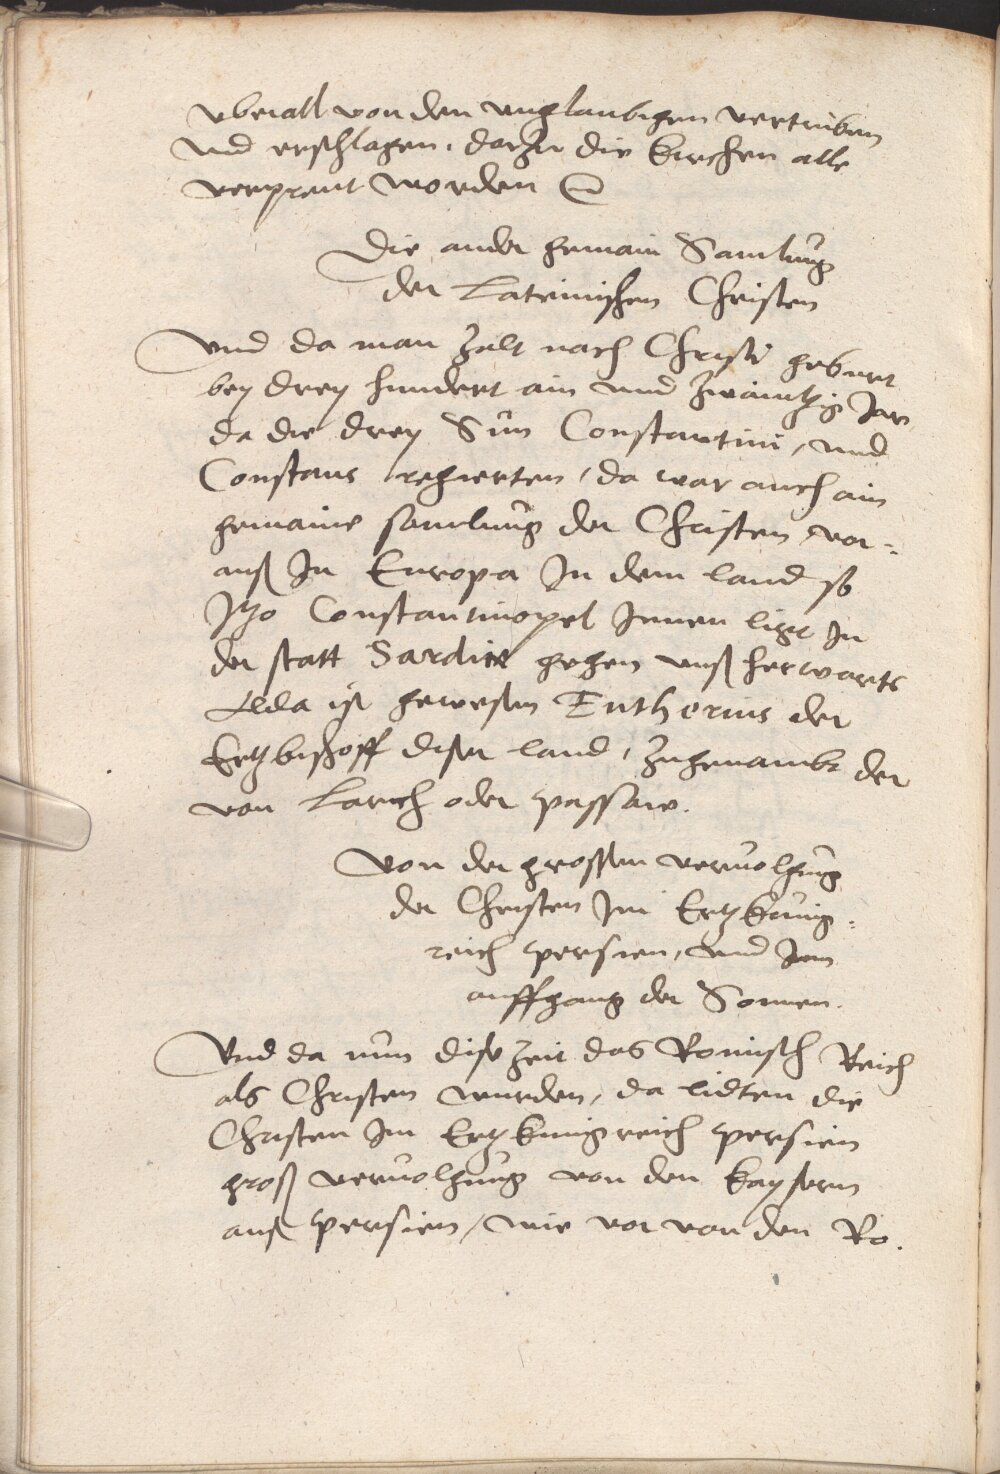 vberall von den vnglaubigen vertriben
vnd erschlagen, darzu die kirchen alle
verprent worden
Die ander gemain Samlung
der Lateinischen Christen
Vnd da man zalt nach Christi geburt
bey drey hundert ain und zwaintzig Jar
da die drey Sün Constantini, und
Constans regierten, da war auch ain
gemaine samlung der Christen, vor=
auß In Europa In dem land so
Itzo Constantinopel Innen ligt In
der statt Sardice gegen vnß herwarts
Alda ist gewesen Eutherius der
Ertzbischoff diser land, zugenambt der
von Larich oder passaw.
Von der grossen vervolgung
der Christen Im Ertzkünig=
reich persien, und Im
auffgang der Sonnen.
Vnd da nun dise zeit das Romisch Reich
als Christen wurden, da lidten die
Christen Im Ertzkunigreich persien
groß vervolgung von den kaysern
auß persien, wie vor von den Ro.